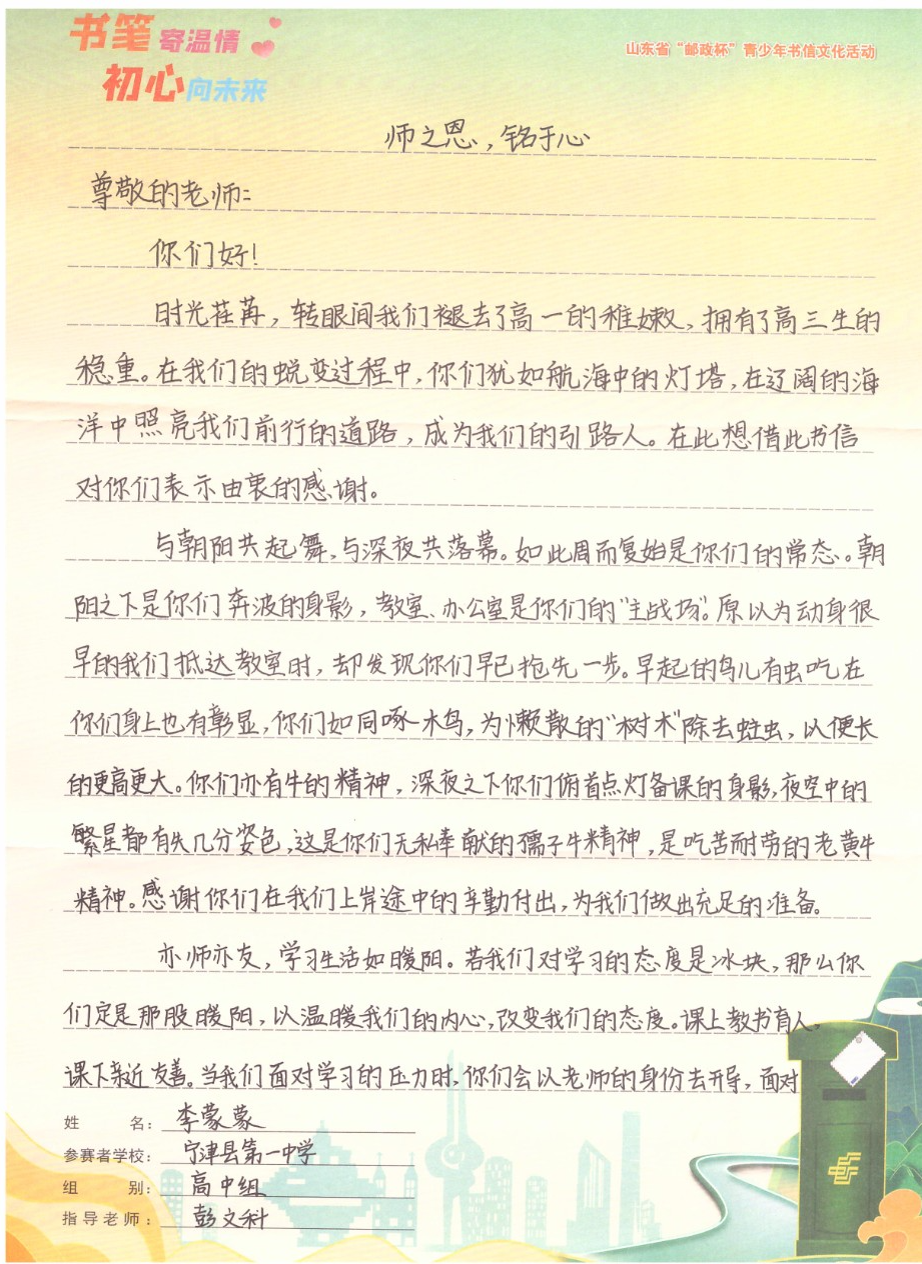 书笔寄温情
初心向未来
山东省“邮政杯”青少年书信文化活动
师之恩,铭于心
尊敬的老师:
你们好!
时光荏苒,转眼间我们褪去了高一的稚嫩,拥有了高三生的
稳重。在我们的蜕变过程中,你们犹如航海中的灯塔,在辽阔的海
洋中照亮我们前行的道路,成为我们的引路人。在此想借此书信
对你们表示由衷的感谢。
与朝阳共起舞,与深夜共落幕。如此周而复始是你们的常态。朝
阳之下是你们奔波的身影,教室、办公室是你们的“主战场”。原以为动身很
早的我们抵达教室时,却发现你们早已抢先一步。早起的鸟儿有虫吃在
你们身上也有彰显,你们如同啄木鸟,为懒散的“树木”除去蛀虫,以便长
的更高更大。你们亦有牛的精神,深夜之下你们俯首点灯备课的身影,夜空中的
繁星都有失几分姿色,这是你们无私奉献的孺子牛精神,是吃苦耐劳的老黄牛
精神。感谢你们在我们上岸途中的辛勤付出,为我们做出充足的准备。
亦师亦友,学习生活如暖阳。若我们对学习的态度是冰块,那么你
们定是那股暖阳,以温暖我们的内心,改变我们的态度。课上教书育人,
课下亲近友善。当我们面对学习的压力时,你们会以老师的身份去开导,面对
姓名:李蒙蒙
参赛者学校:宁津县第一中学
组别:高中组
指导老师:彭文科